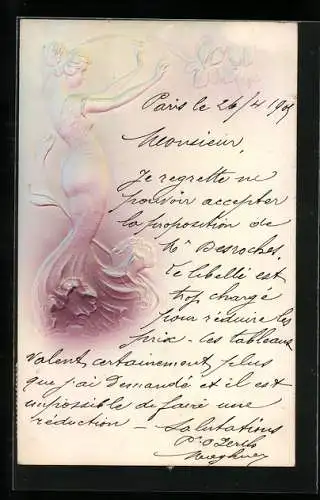 Paris le 26/4 190
Monsieur,
Je regrette ne
pouvoir accepter
la proposition de
Mr Desroches.
Le libellé est
trop chargé
pour réduire les
prix - ces tableaux
valent certainement plus
que j'ai demandé et il est
impossible de faire une
réduction - Salutations